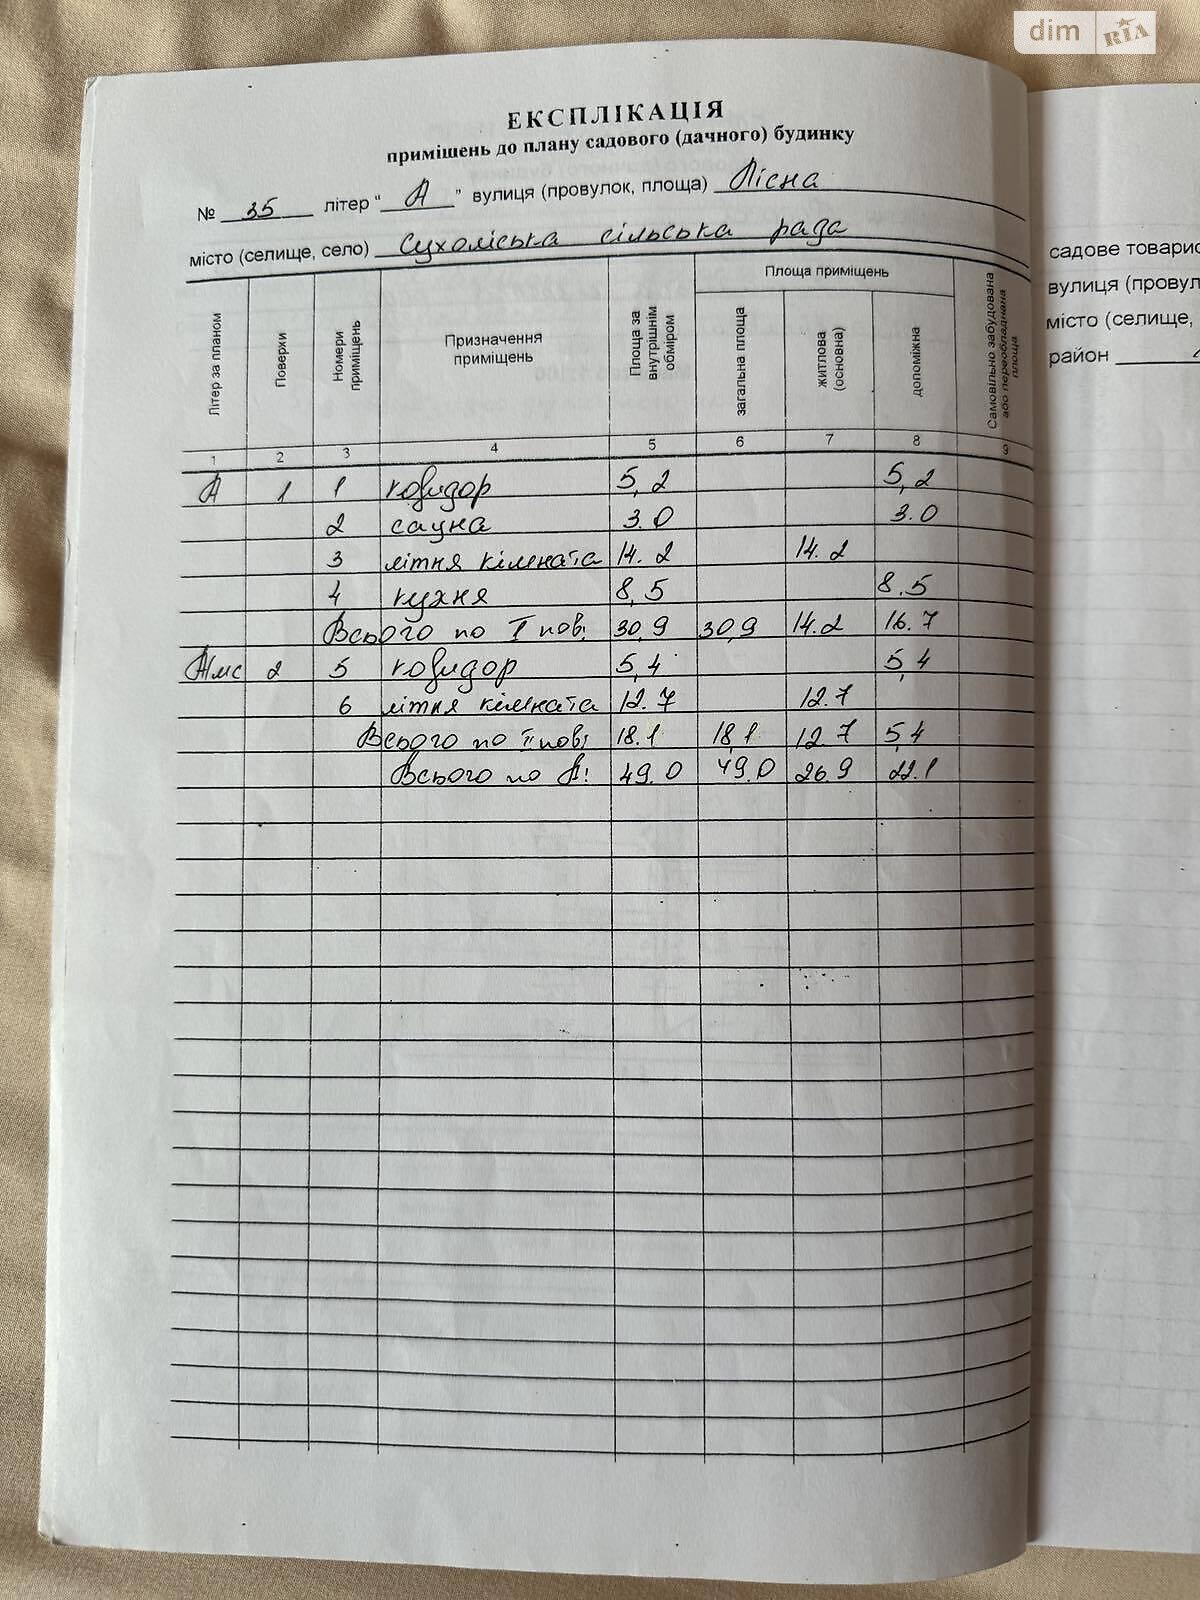 dim RIA
ЕКСПЛІКАЦІЯ
приміщень до плану садового (дачного) будинку
№ 35 літер “ А ” вулиця (провулок, площа) Лісна
місто (селище, село) Сухоліська сільська рада
Літер за планом Поверхи Номери приміщень Призначення приміщень Площа за внутрішнім обміром Площа приміщень загальна площа житлова (основна) допоміжна Самовільно забудована або переобладнана площа
1 2 3 4 5 6 7 8 9
А 1 1 коридор 5,2 5,2
2 сауна 3.0 3.0
3 літня кімната 14.2 14.2
4 кухня 8,5 8.5
Всього по І пов: 30,9 30,9 14.2 16.7
Амс 2 5 коридор 5,4 5,4
6 літня кімната 12.7 12.7
Всього по ІІ пов: 18.1 18,1 12.7 5,4
Всього по А: 49.0 49.0 26.9 22.1
садове товарис
вулиця (провул
місто (селище,
район